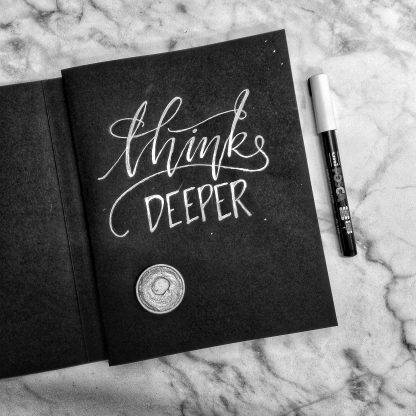 think
DEEPER